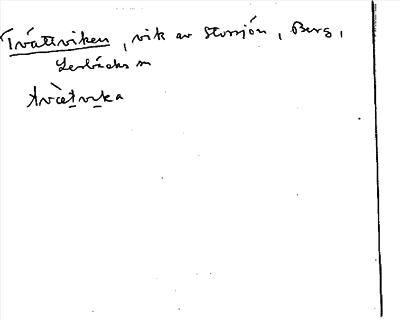 Tvättviken, vik av Storsjön, Berg,
Lerbäcks sn
tvæ̀tvika